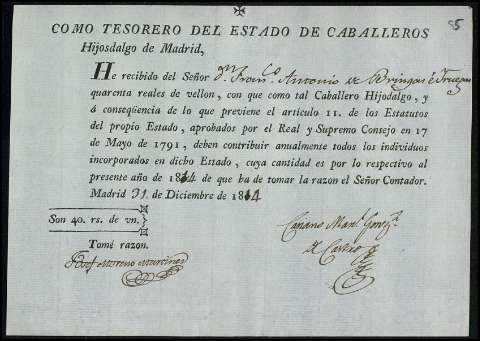 85
COMO TESORERO DEL ESTADO DE CABALLEROS
Hijosdalgo de Madrid,
He recibido del Señor Dn. Franco. Antonio de Bringas é
quarenta reales de vellon, con que como tal Caballero Hijodalgo, y
á conseqüencia de lo que previene el artículo 11. de los Estatutos
del propio Estado, aprobados por el Real y Supremo Consejo en 17
de Mayo de 1791, deben contribuir anualmente todos los individuos
incorporados en dicho Estado, cuya cantidad es por lo respectivo al
presente año de 1814 de que ha de tomar la razon el Señor Contador.
Madrid 31 de Diciembre de 1814
Son 40. rs. de vn.
Tomé razon.
Josef Moreno Martinez
Manl. Gonzz.
de Castro